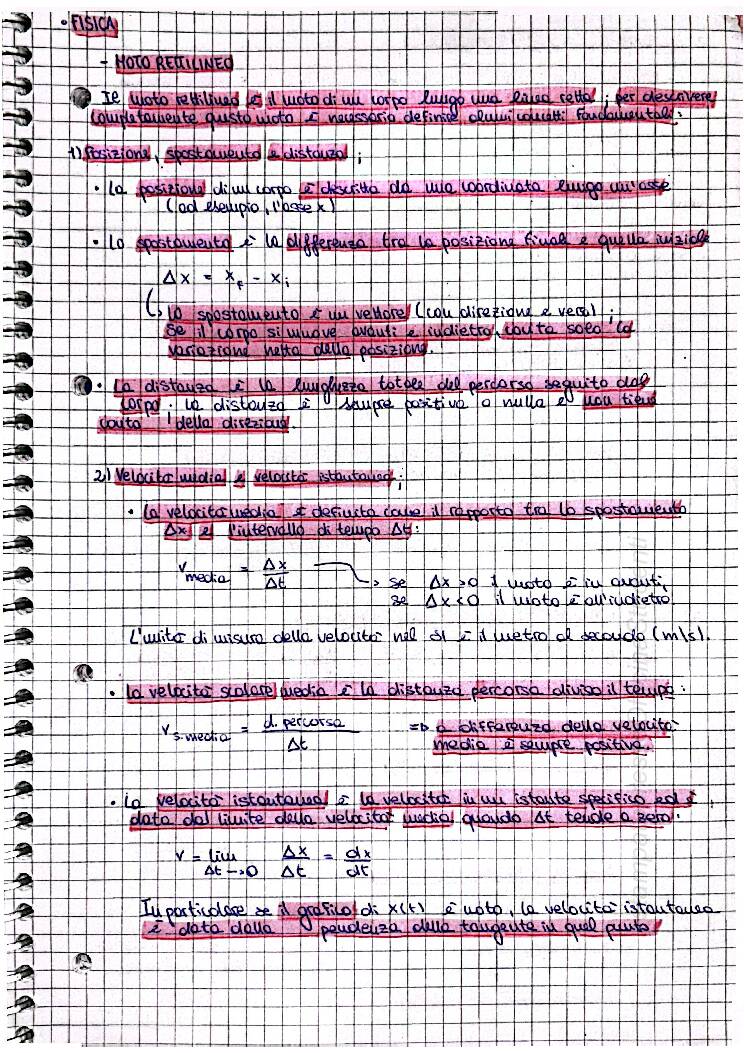 • FISICA
- MOTO RETTILINEO
Il moto rettilineo è il moto di un corpo lungo una linea retta ; per descrivere
completamente questo moto è necessario definire alcuni concetti fondamentali:
1) Posizione, spostamento e distanza ;
• La posizione di un corpo è descritta da una coordinata lungo un'asse
(ad esempio, l'asse x)
• Lo spostamento è la differenza tra la posizione finale e quella iniziale
Δx = x_f - x_i
↳ Lo spostamento è un vettore (con direzione e verso) ;
se il corpo si muove avanti e indietro, conta solo la
variazione netta della posizione.
• La distanza è la lunghezza totale del percorso seguito dal
corpo ; la distanza è sempre positiva o nulla e non tiene
conto della direzione.
2) Velocità media e velocità istantanea ;
• La velocità media è definita come il rapporto tra lo spostamento
Δx e l'intervallo di tempo Δt :
v_media = Δx/Δt → se Δx > 0 il moto è in avanti,
se Δx < 0 il moto è all'indietro
L'unità di misura della velocità nel SI è il metro al secondo (m/s).
• La velocità scalare media è la distanza percorsa diviso il tempo :
v_s.media = d. percorsa/Δt ⇒ a differenza della velocità
media è sempre positiva.
• La velocità istantanea è la velocità in un istante specifico ed è
data dal limite della velocità media quando Δt tende a zero :
v = lim Δt→0 Δx/Δt = dx/dt
In particolare se il grafico di x(t) è noto, la velocità istantanea
è data dalla pendenza della tangente in quel punto